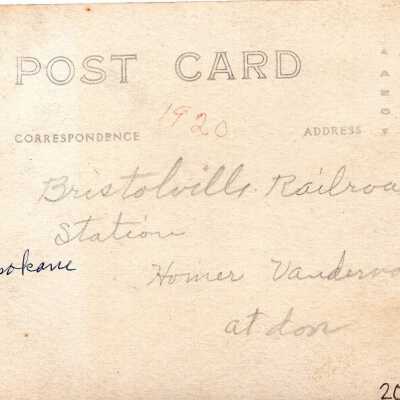 POST CARD
1920
CORRESPONDENCE ADDRESS
Bristolville Railroa
Station
okane
Homer Vanderv
at don
20